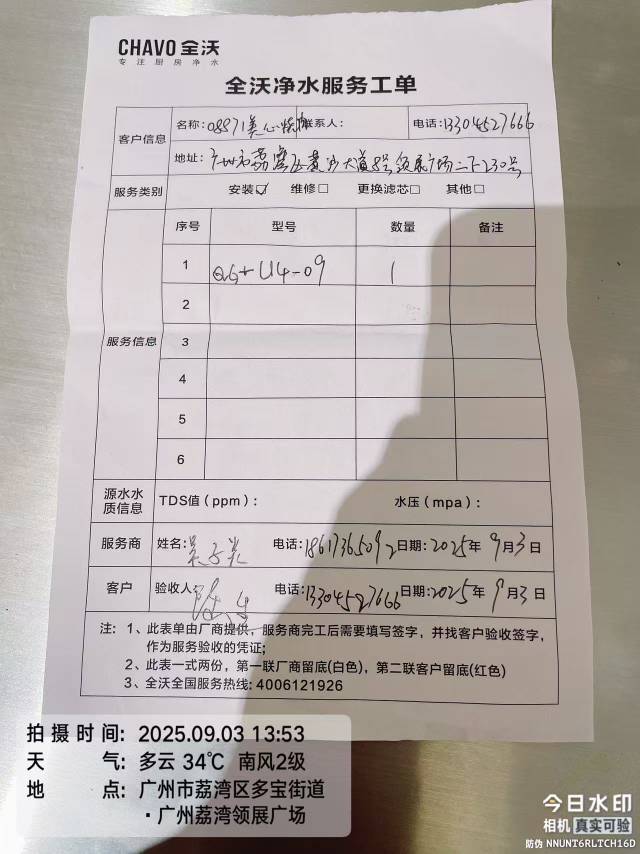 CHAVO 全沃
专注厨房净水
全沃净水服务工单
客户信息
名称: 08871美心 联系人: 电话: 13304527666
地址: 广州市荔湾区黄沙大道8号领展广场二下230号
服务类别 安装☑ 维修□ 更换滤芯□ 其他□
服务信息
序号 型号 数量 备注
1 QG+U4-09 1
2
3
4
5
6
源水水质信息 TDS值（ppm）: 水压（mpa）:
服务商 姓名: 电话: 18617365092 日期: 2025年9月3日
客户 验收人: 电话: 13304527666 日期: 2025年9月3日
注: 1、此表单由厂商提供，服务商完工后需要填写签字，并找客户验收签字，
作为服务验收的凭证;
2、此表一式两份，第一联厂商留底(白色)，第二联客户留底(红色)
3、全沃全国服务热线: 4006121926
拍摄时间: 2025.09.03 13:53
天 气: 多云 34℃ 南风2级
地 点: 广州市荔湾区多宝街道
·广州荔湾领展广场
今日水印
相机 真实可验
防伪 NNUNT6RLTCH16D